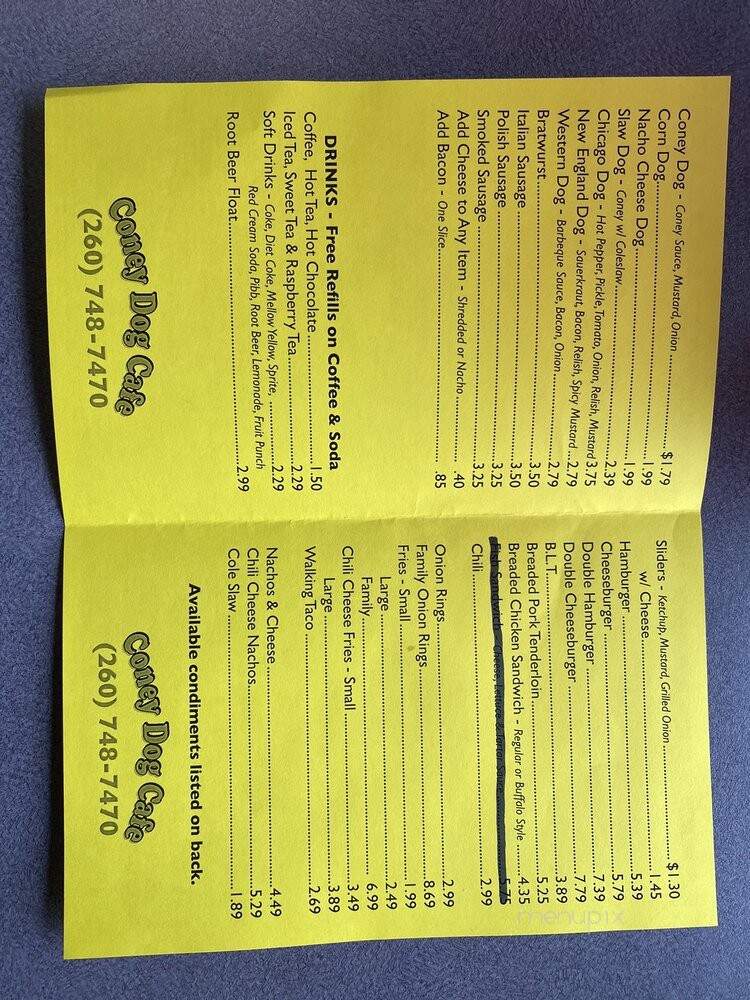 Coney Dog - Coney Sauce, Mustard, Onion ........ $1.79
Corn Dog........ 1.99
Nacho Cheese Dog........ 1.99
Slaw Dog - Coney w/ Coleslaw........ 2.39
Chicago Dog - Hot Pepper, Pickle, Tomato, Onion, Relish, Mustard 3.75
New England Dog - Sauerkraut, Bacon, Relish, Spicy Mustard .. 2.79
Western Dog - Barbeque Sauce, Bacon, Onion........ 2.79
Bratwurst........ 3.50
Italian Sausage........ 3.50
Polish Sausage........ 3.25
Smoked Sausage........ 3.25
Add Cheese to Any Item - Shredded or Nacho........ .40
Add Bacon - One Slice........ .85
DRINKS - Free Refills on Coffee & Soda
Coffee, Hot Tea, Hot Chocolate........ 1.50
Iced Tea, Sweet Tea & Raspberry Tea........ 2.29
Soft Drinks - Coke, Diet Coke, Mellow Yellow, Sprite, ........ 2.29
Red Cream Soda, Pibb, Root Beer, Lemonade, Fruit Punch
Root Beer Float........ 2.99
Coney Dog Cafe
(260) 748-7470
Sliders - Ketchup, Mustard, Grilled Onion ........ $1.30
w/ Cheese........ 1.45
Hamburger........ 5.39
Cheeseburger........ 5.79
Double Hamburger........ 7.39
Double Cheeseburger........ 7.79
B.L.T........ 3.89
Breaded Pork Tenderloin........ 5.25
Breaded Chicken Sandwich - Regular or Buffalo Style........ 4.35
Fish Sandwich - Cheese, Lettuce & Tartar Sauce........ 5.75
Chili........ 2.99
Onion Rings........ 2.99
Family Onion Rings........ 8.69
Fries - Small........ 1.99
Large........ 2.49
Family........ 6.99
Chili Cheese Fries - Small........ 3.49
Large........ 3.89
Walking Taco........ 2.69
Nachos & Cheese........ 4.49
Chili Cheese Nachos........ 5.29
Cole Slaw........ 1.89
Available condiments listed on back.
Coney Dog Cafe
(260) 748-7470
menupix